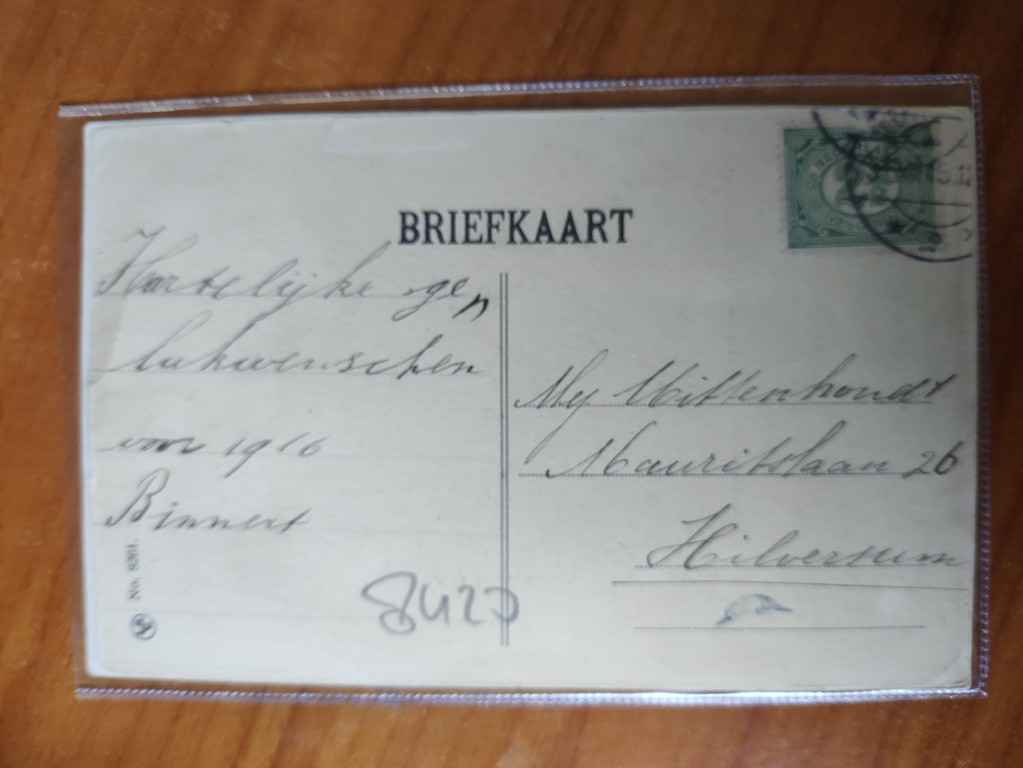 BRIEFKAART
Hartelijke gen
lukwenschen
voor 1916
Binnert
Mej Uittenhoudt
Mauritslaan 26
Hilversum
No. 8261.
8420
2½